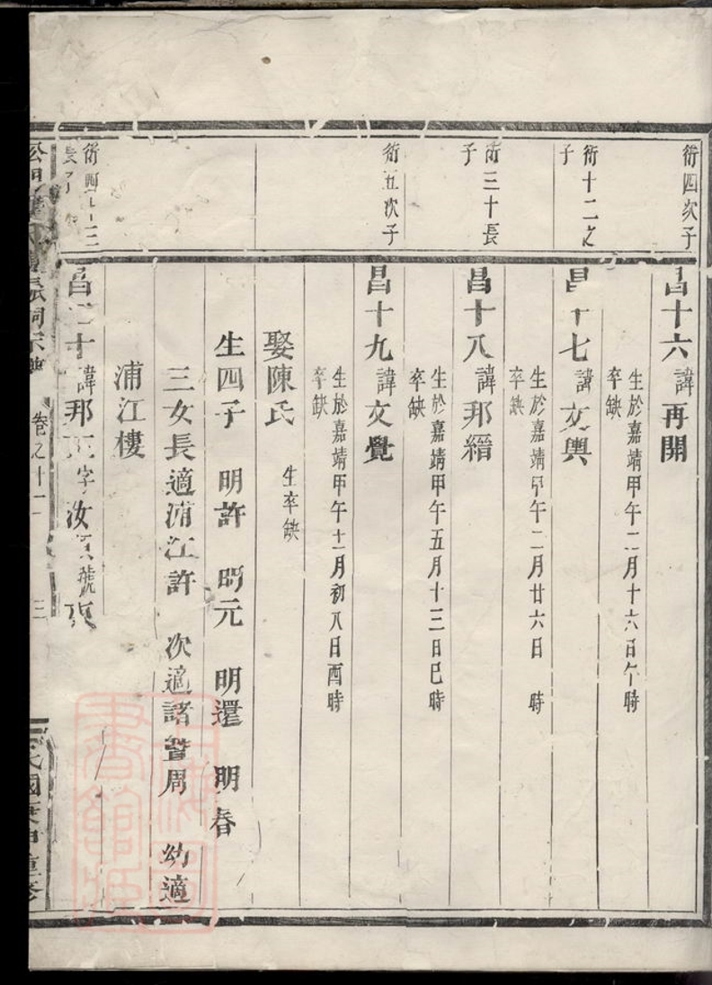 衍四次子
昌十六諱再開
生於嘉靖甲午二月十六日午時
卒缺
衍十二之
子
昌十七諱文輿
生於嘉靖甲午二月廿六日 時
卒缺
衍三十長
子
昌十八諱邦縉
生於嘉靖甲午五月十三日巳時
卒缺
衍五次子
昌十九諱文覺
生於嘉靖甲午十一月初八日酉時
卒缺
娶陳氏 生卒缺
生四子 明許 明元 明還 明春
三女長適浦江許 次適諸暨周 幼適
浦江樓
衍四
昌 十諱邦 字汝 號
卷之十一
三
民國庚申重修